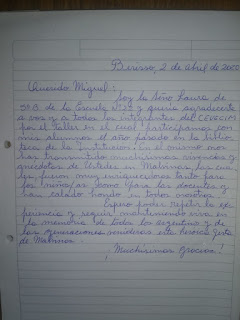 Berisso, 2 de Abril de 2000
Querido Miguel:
Soy la Seño Laura de
5º B de la Escuela Nº 22 y quería agradecerte
a vos y a todos los integrantes del CEVECIM
por el Taller en el cual participamos con
mis alumnos el año pasado en la Biblio
teca de la Institución. En el mismo nos
han transmitido muchísimas vivencias y
anécdotas de Ustedes en Malvinas, las cua
les fueron muy enriquecedoras tanto para
los niños/as como para los docentes y
han calado hondo en todos nosotros.
Espero poder repetir la ex
periencia y seguir manteniendo viva en
la memoria de todos los argentinos y de
las generaciones venideras esta Heroica Gesta
de Malvinas.
¡Muchísimas Gracias!